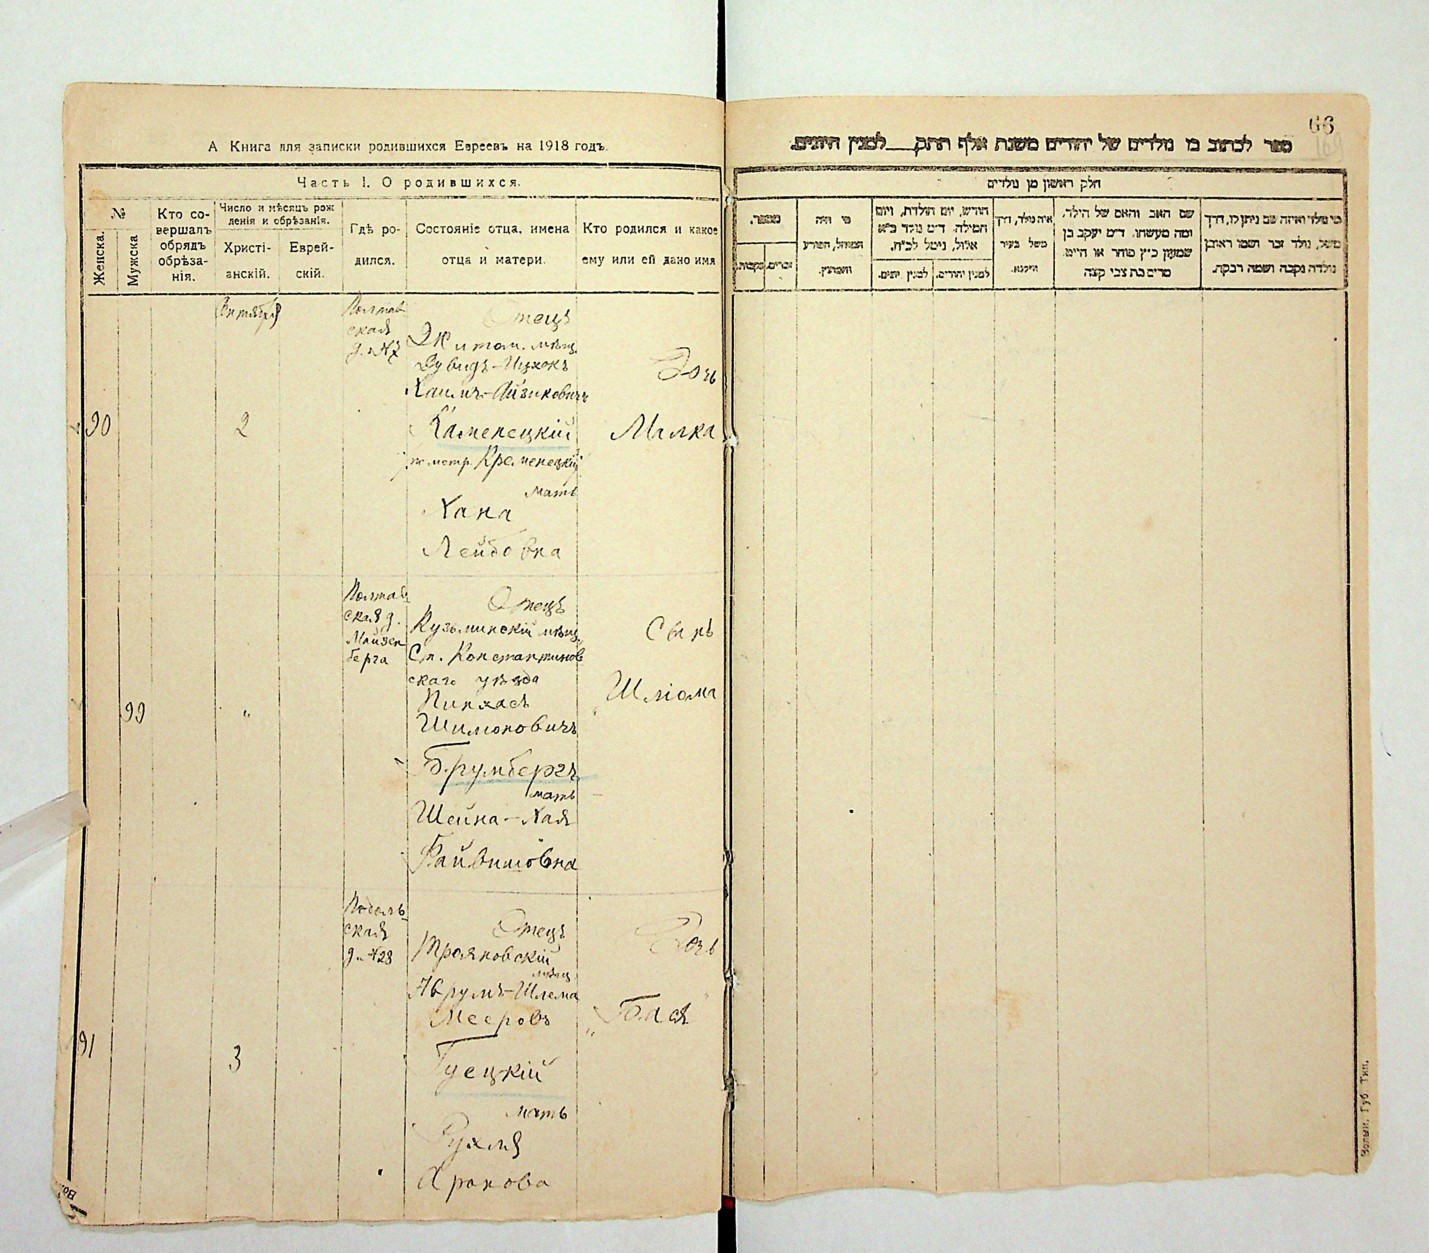 А Книга для записки родившихся Евреевъ на 1918 годъ.
Часть I. О родившихся.
№
Женска.
Мужска
Кто со-
вершалъ
обрядъ
обрѣза-
нія.
Число и мѣсяцъ рож
ленія и обрѣзанія.
Христі-
анскій.
Еврей-
скій.
Гдѣ ро-
дился.
Состояніе отца, имена
отца и матери.
Кто родился и какое
ему или ей дано имя
Октября
Полтав
ская
д. №7
Отецъ
Житом. мѣщ.
Дувидъ-Ицхокъ
Хаимъ-Айзиковичъ
Каменецкій
Кременецкій
мать
Хана
Лейбовна
90
2
Дочь
Малка
Полтав
ская д.
Майзен
берга
Отецъ
Кузьминскій мѣщ.
Ст. Константинов
скаго уѣзда
Пинхасъ
Шимоновичъ
Брумбергъ
мать
Шейна-Хая
Файвишовна
99
"
Сынъ
Шліома
Подоль
ская
д. №28
Отецъ
Трояновскій
мѣщ.
Аврумъ-Шлема
Мееровъ
Гуецкій
мать
Рухля
Аронова
91
3
Дочь
Бася
66
ספר לכתוב בו נולדים של יהודים משנת אלף תתק___למנין היונים.
חלק ראשון מן נולדים
מספר.
נקבות.
זכרים.
מי היה
המוהל, הפורע
והמוצץ.
חודש, יום הולדת, ויום
המילה. ד״מ נולד כ״א
אלול, נימול לכ״ח.
למנין יונים.
למנין יהודים.
איה נולד, דרך
משל בעיר
ווילנא.
שם האב והאם של הילד.
ומה מעשהו. ד״מ יעקב בן
שמעון כ״ץ סוחר או חייט.
מרים בת צבי קצה
מי נולד ואיזה שם ניתן לו, דרך
משל, נולד זכר ושמו ראובן
נולדה נקבה ושמה רבקה.
Волын. Губ. Тип.